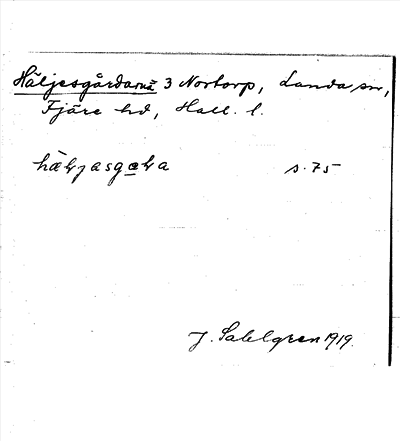 Häljesgårdarna 3 Nortorp, Landa sn,
Fjäre hd, Hall. l.
s. 75
J. Sahlgren 1919.